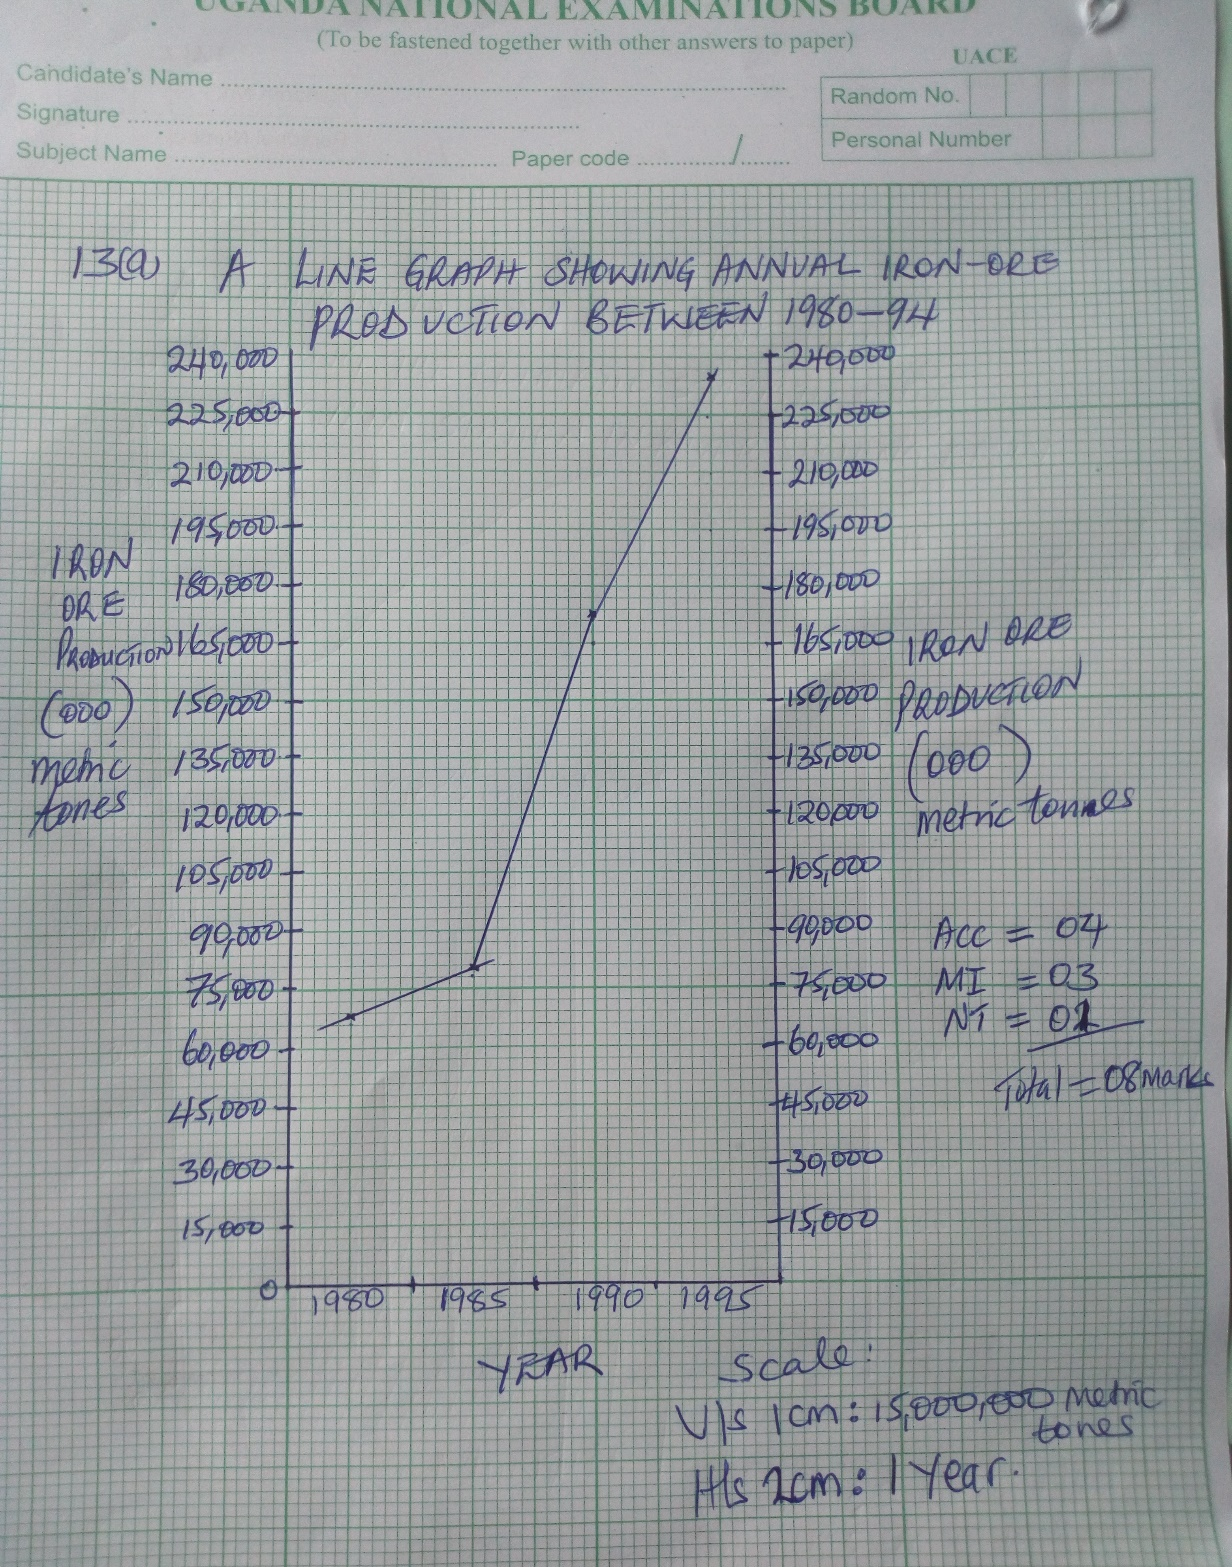 UGANDA NATIONAL EXAMINATIONS BOARD
(To be fastened together with other answers to paper)
UACE
Candidate's Name
Random No.
Signature
Personal Number
Subject Name
Paper code /
13(a) A LINE GRAPH SHOWING ANNUAL IRON-ORE
PRODUCTION BETWEEN 1980-94
240,000
225,000
210,000
195,000
180,000
165,000
150,000
135,000
120,000
105,000
90,000
75,000
60,000
45,000
30,000
15,000
0
IRON
ORE
PRODUCTION
(000)
metric
tones
240,000
225,000
210,000
195,000
180,000
165,000
150,000
135,000
120,000
105,000
90,000
75,000
60,000
45,000
30,000
15,000
IRON ORE
PRODUCTION
(000)
metric tonnes
ACC = 04
MI = 03
NT = 01
Total = 08 Marks
1980 1985 1990 1995
YEAR
Scale:
V/s 1cm: 15,000,000 Metric
tones
H/s 2cm: 1 Year.